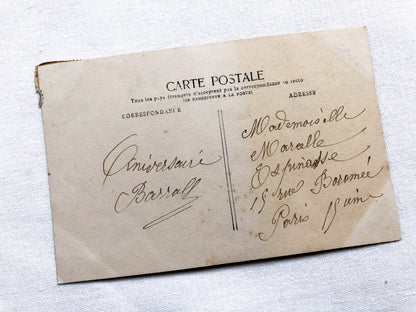 CARTE POSTALE
Tous les pays étrangers n'acceptent pas la correspondance au recto
(SE RENSEIGNER A LA POSTE)
CORRESPONDANCE
ADRESSE
Anniversaire
Mademoiselle
Marcelle
Espinasse
15 rue Boromée
Paris 15ième